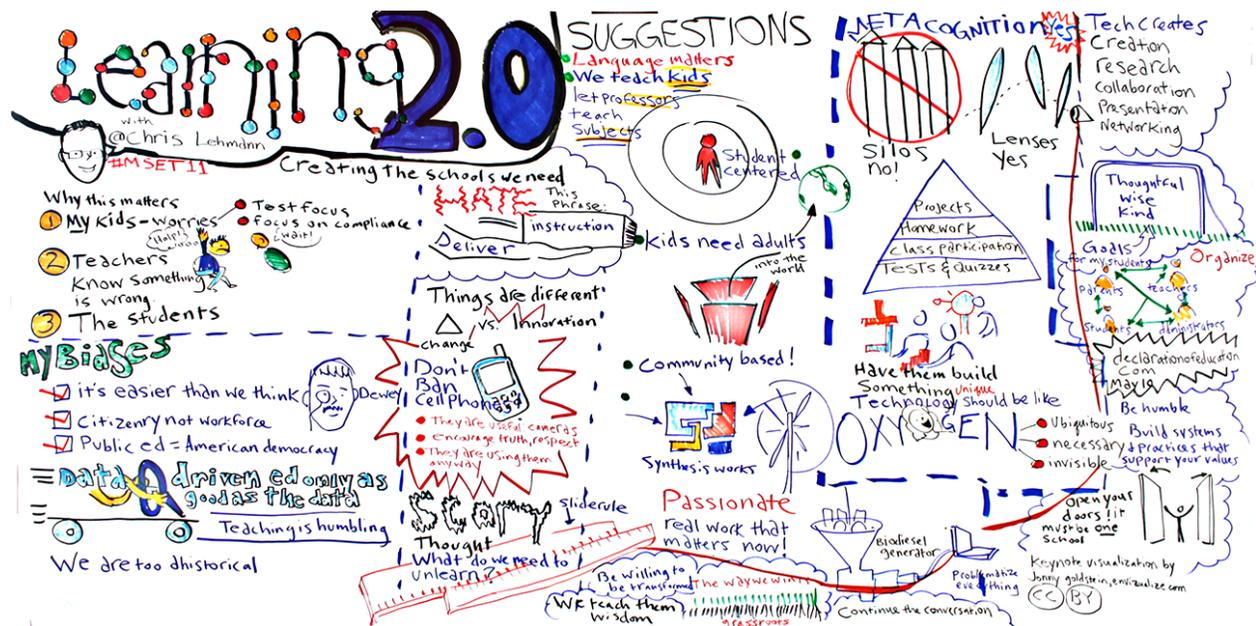 Learning 2.0
with
@Chris Lehmann
#MSET11
Creating the schools we need
Why this matters
1 My kids - worries
Test focus
focus on compliance
Help!
wait!
2 Teachers
Know something
is wrong.
3 The students
My Biases
it's easier than we think
Dewey
Citizenry not workforce
Public ed = American democracy
Data driven ed only as
good as the data
Teaching is humbling
We are too ahistorical
HATE
This
Phrase:
Deliver
instruction
Things are different
change
vs. Innovation
Don't
Ban
Cell Phones
They are useful cameras
Encourage truth, respect
They are using them
anyway
Scary
Thought
sliderule
What do we need to
unlearn?
SUGGESTIONS
Language matters
We teach kids
let professors
teach
Subjects
Student
centered
Kids need adults
into the
world
Community based!
Synthesis works
Passionate
real work that
matters now!
Be willing to
be transformed
We teach them
wisdom
The way we win!
grassroots
METACOGNITION
Yes
Silos
no!
Lenses
Yes
Projects
Homework
class participation
Tests & Quizzes
Have them build
Something unique
Technology should be like
OXYGEN
Ubiquitous
necessary
invisible
Biodiesel
generator
Problematize
everything
Continue the conversation
Tech Creates
Creation
Research
Collaboration
Presentation
Networking
Thoughtful
Wise
Kind
Goals
for my students
Organize
Parents
teachers
Students
administrators
declarationofeducation
.com
May 10
Be humble
Build systems
& practices that
support your values
Open your
doors: it
must be one
School
Keynote visualization by
Jonny goldstein, envizualize.com
CC BY